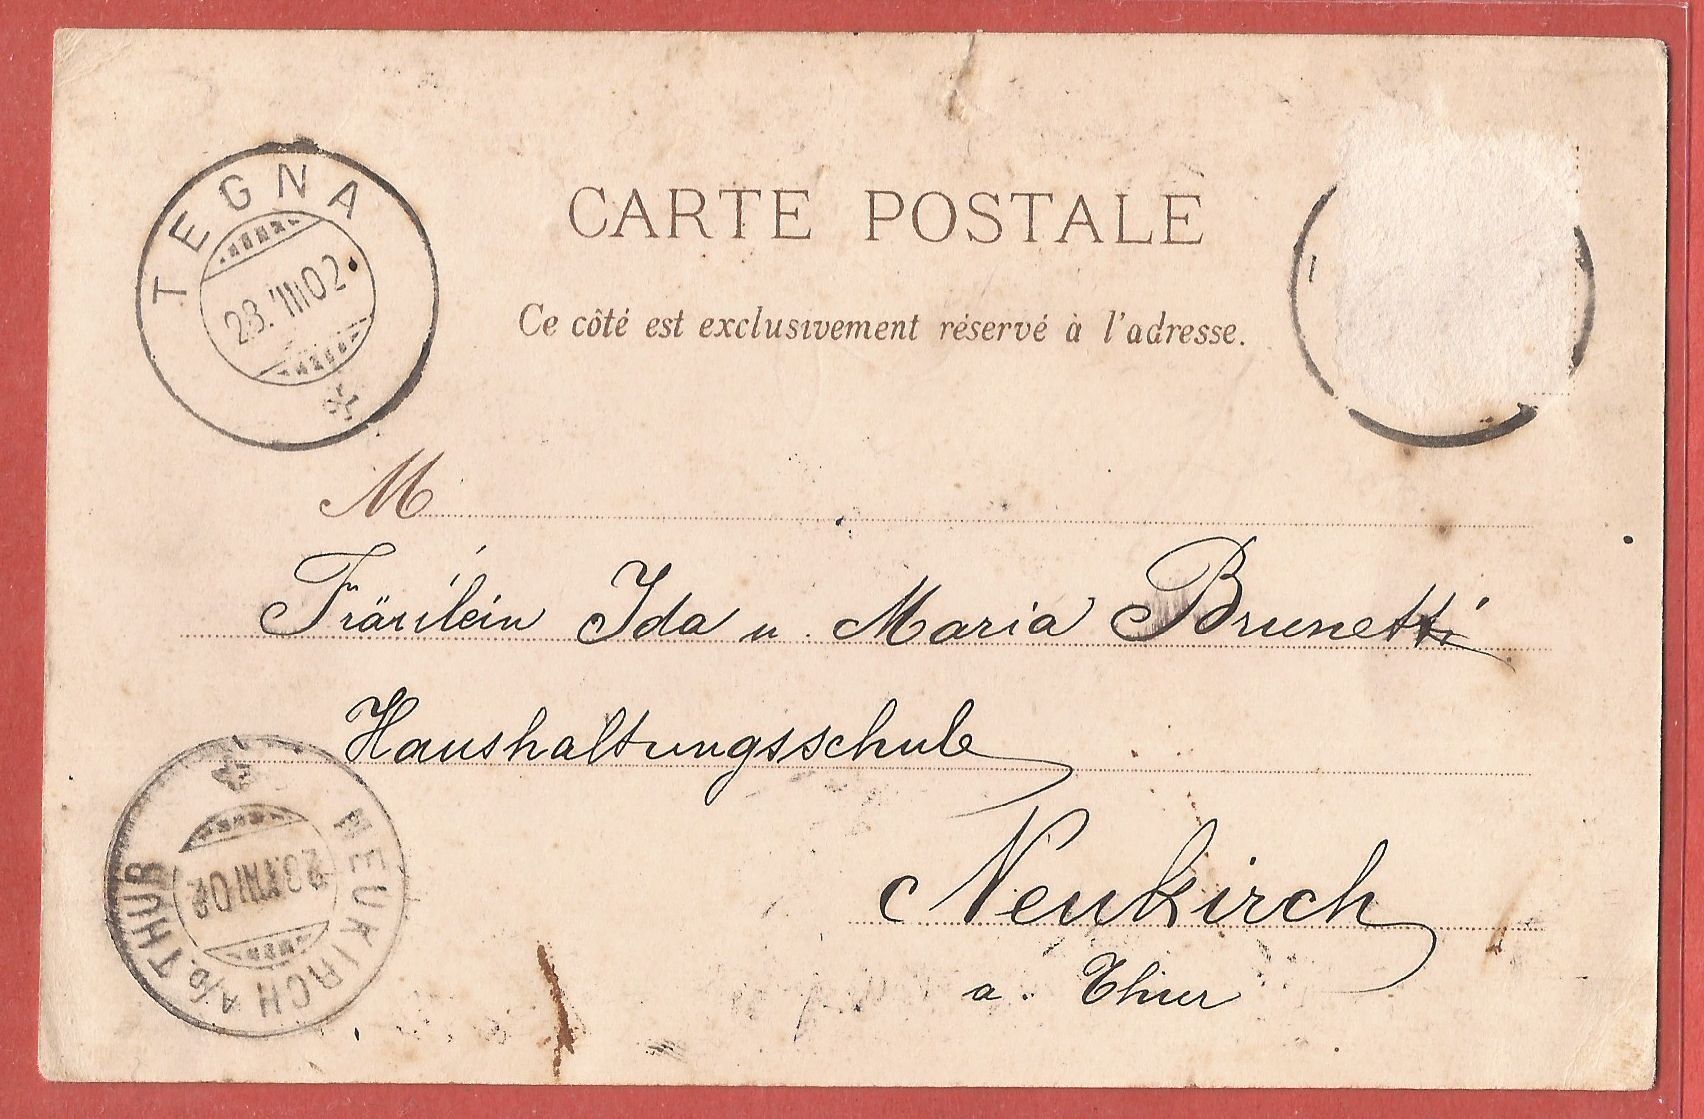 TEGNA
23.VIII 02.
CARTE POSTALE
Ce côté est exclusivement réservé à l'adresse.
M
Fräulein Ida u. Maria Brunetti
Haushaltungsschule
Neukirch
a. Thur
NEUKIRCH A/D. THUR
23.VIII 02